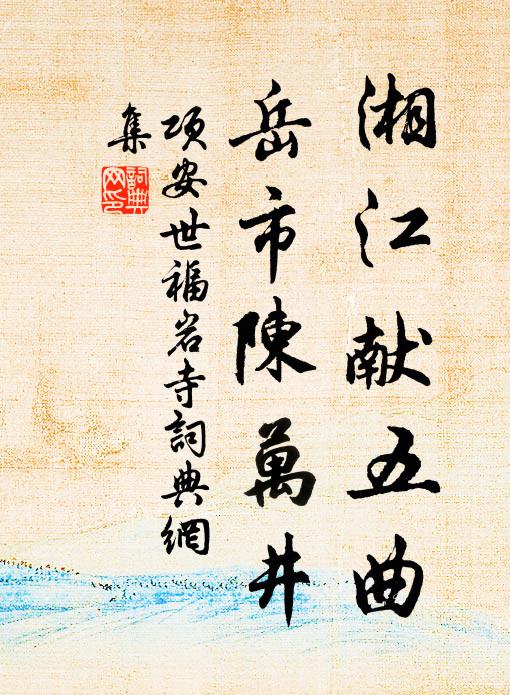 湘江献五曲
岳市陳萬井
项安世福岩寺詞典網
集
詞典
网印